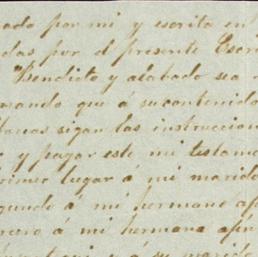 ado por mi y escrita en
das por el presente Escri
Bendito y alabado sea
mando que á su contenido
sigan las instruccion
y pagar este mi testame
rimer lugar a mi marido
gundo á mi hermano
rcero á mi hermana
y á su marido